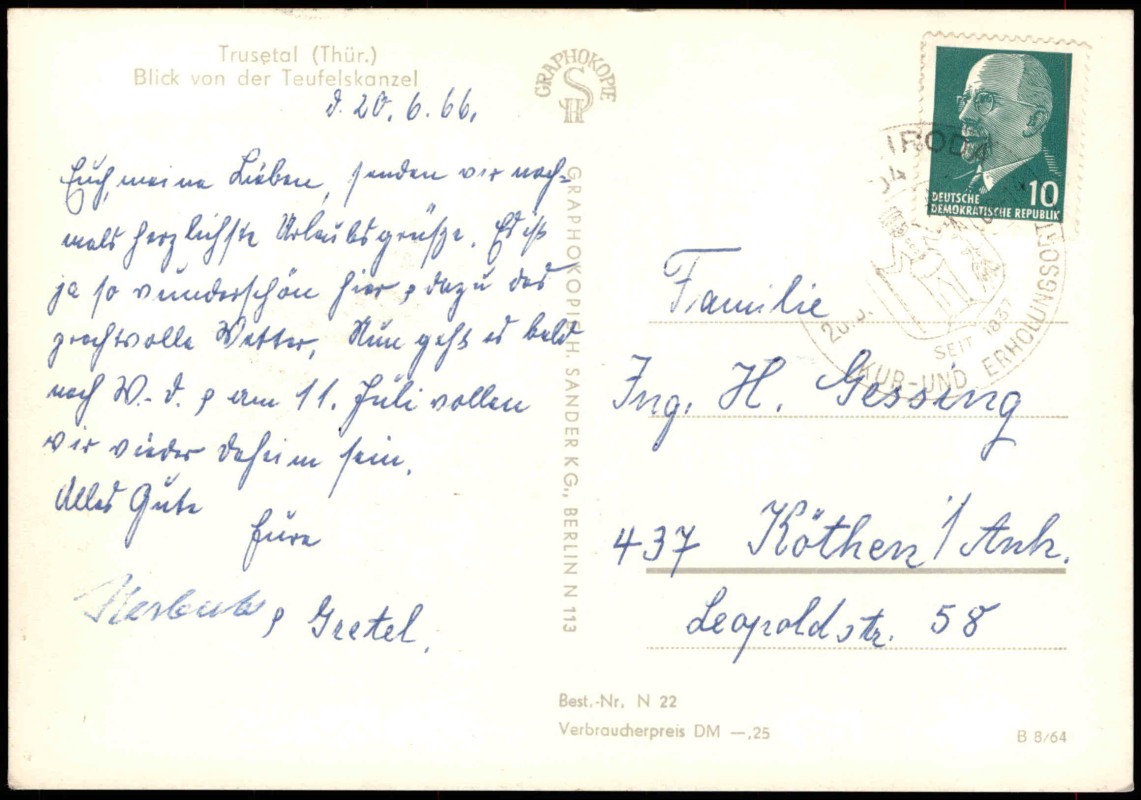 Trusetal (Thür.)
Blick von der Teufelskanzel
d. 20. 6. 66.
Euch, meine Lieben, senden wir noch-
mals herzlichste Urlaubsgrüße. Es ist
ja so wunderschön hier & dazu das
prachtvolle Wetter. Nun geht es bald
nach W. d. & am 11. Juli wollen
wir wieder daheim sein.
Alles Gute
Eure
& Gretel.
GRAPHOKOPIE
GRAPHOKOPIE H. SANDER KG., BERLIN N 113
DEUTSCHE
DEMOKRATISCHE REPUBLIK
10
SEIT 1837
KUR-UND ERHOLUNGSORT
Familie
Ing. H. Gessing
437 Köthen / Anh.
Leopoldstr. 58
Best.-Nr. N 22
Verbraucherpreis DM —,25
B 8/64